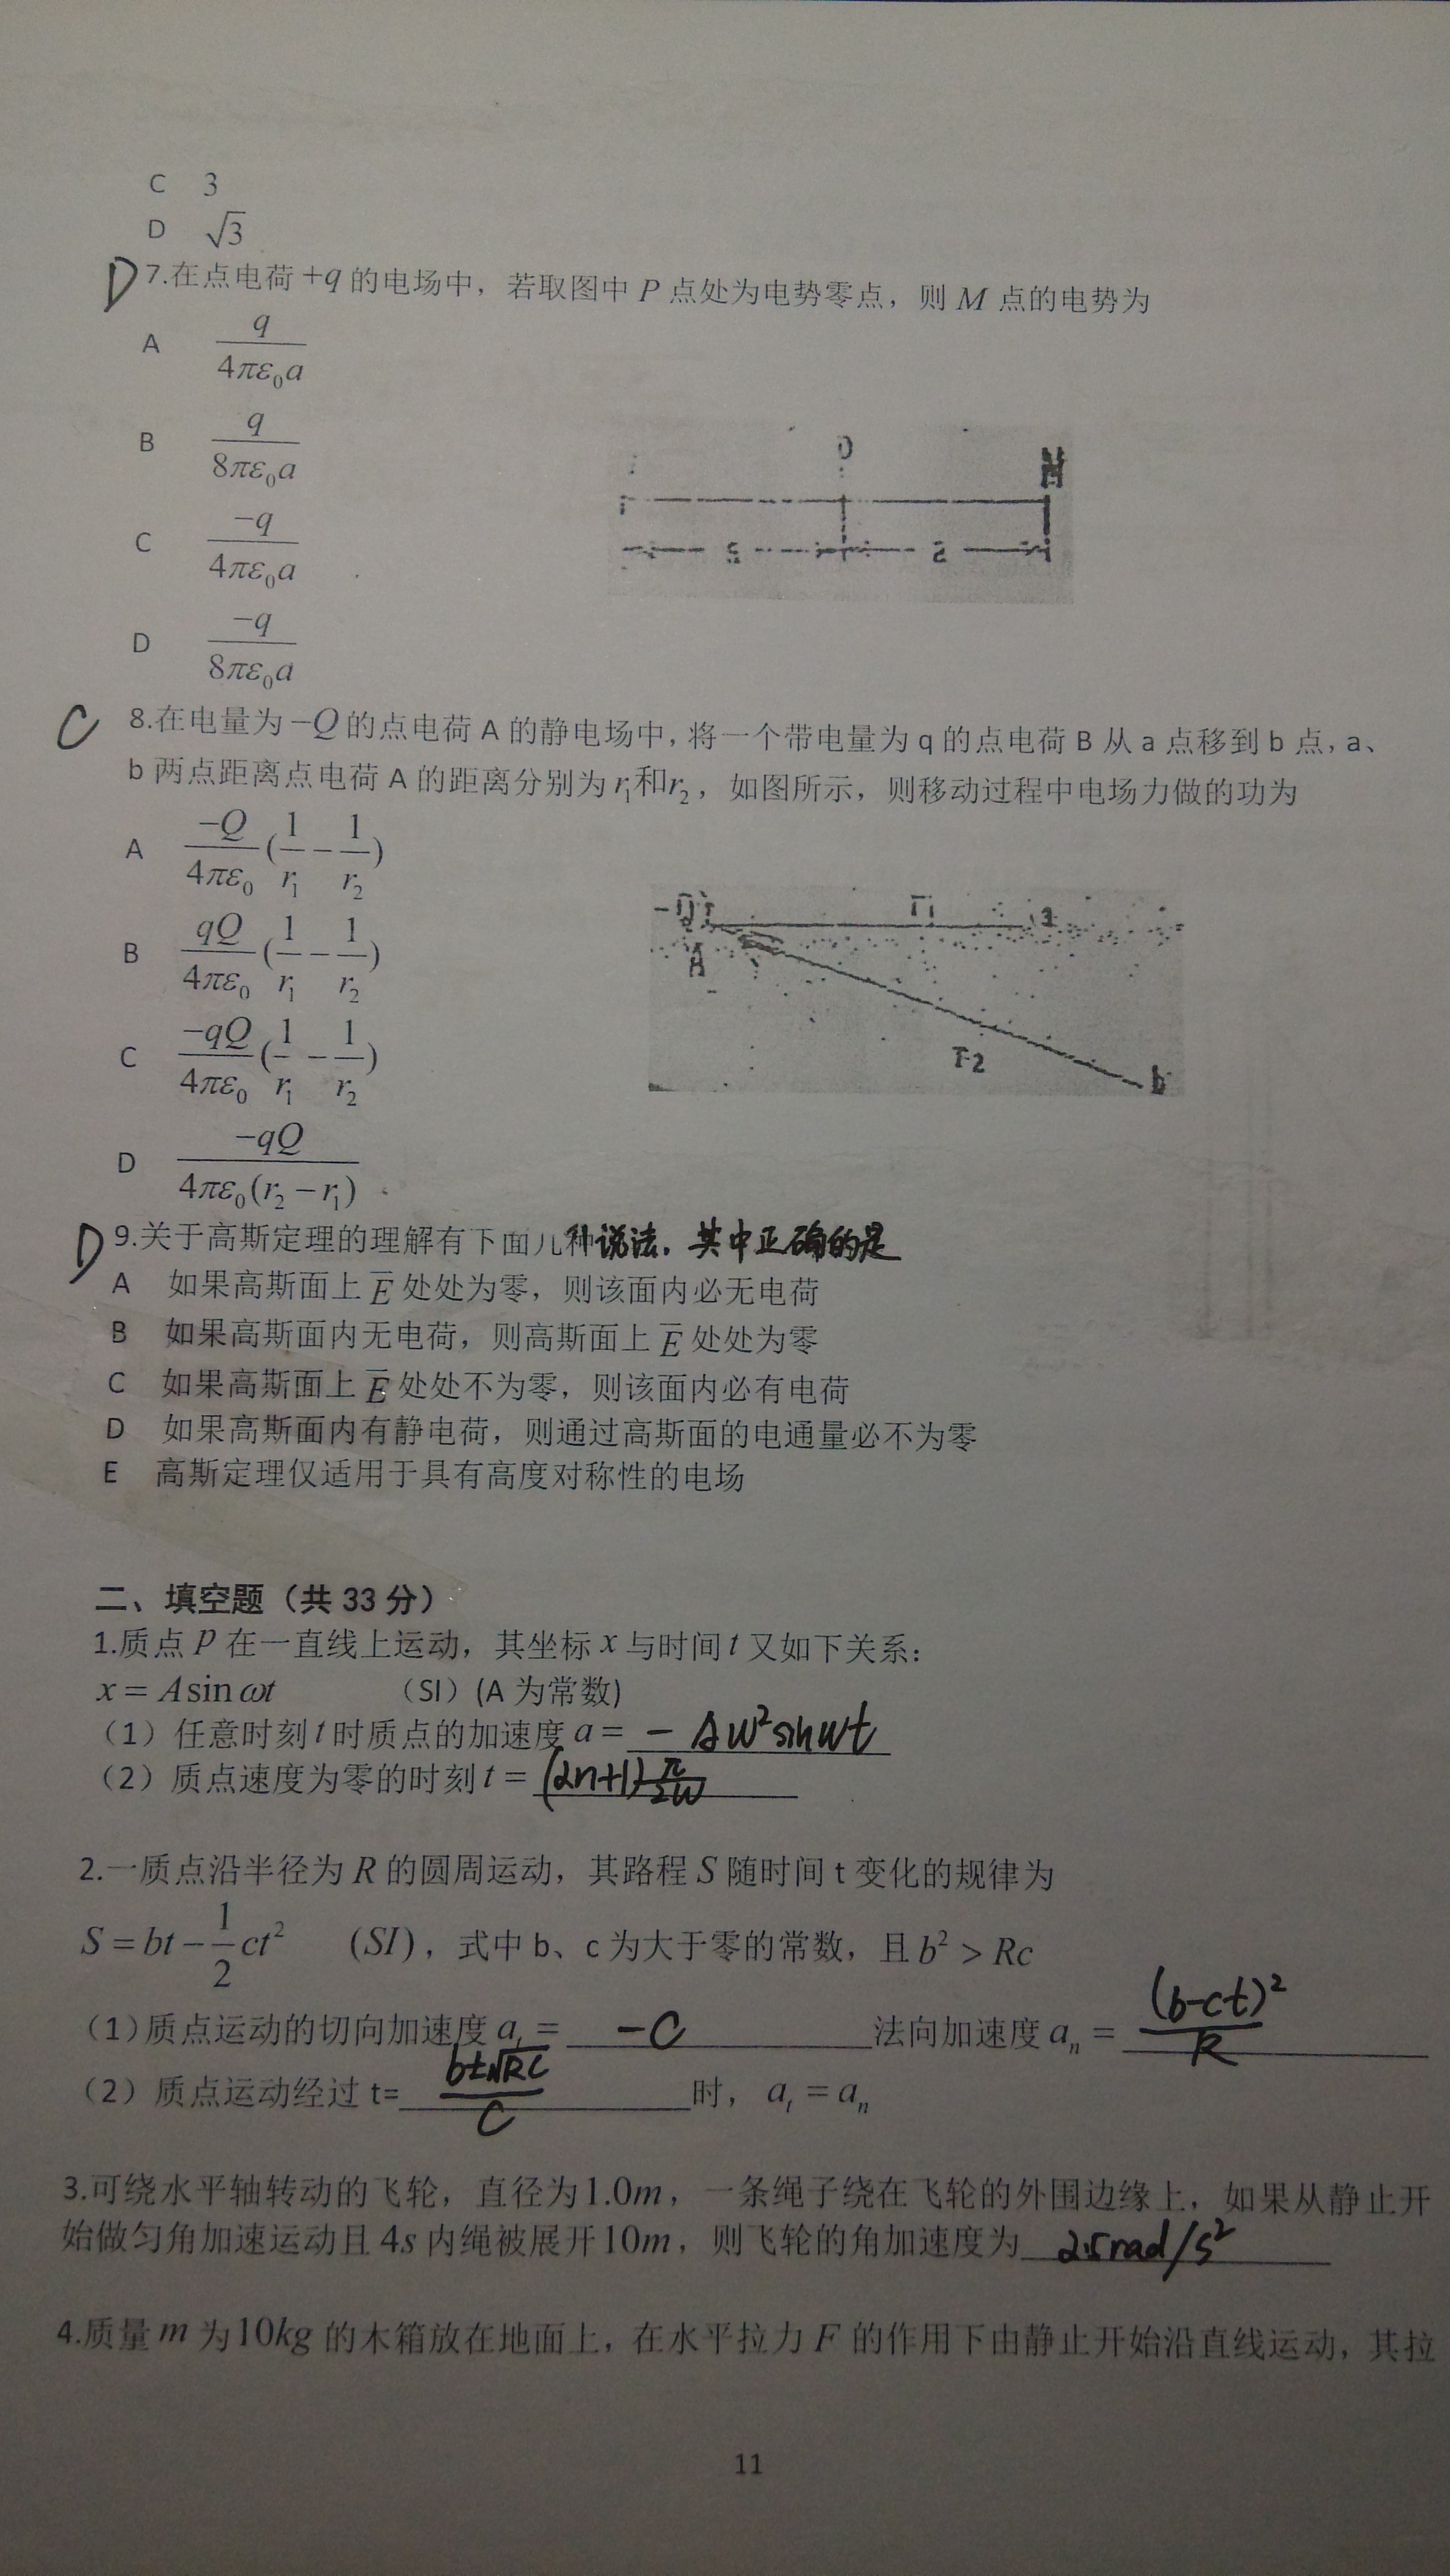 C 3
D √3
D 7.在点电荷+q的电场中，若取图中 P 点处为电势零点，则 M 点的电势为
A q/(4πε₀a)
B q/(8πε₀a)
C -q/(4πε₀a)
D -q/(8πε₀a)
C 8.在电量为-Q的点电荷 A 的静电场中，将一个带电量为 q 的点电荷 B 从 a 点移到 b 点，a、
b 两点距离点电荷 A 的距离分别为r₁和r₂，如图所示，则移动过程中电场力做的功为
A -Q/(4πε₀) (1/r₁ - 1/r₂)
B qQ/(4πε₀) (1/r₁ - 1/r₂)
C -qQ/(4πε₀) (1/r₁ - 1/r₂)
D -qQ/(4πε₀(r₂-r₁))
-Q
r1
A
r2
b
D 9.关于高斯定理的理解有下面几种说法，其中正确的是
A 如果高斯面上 E̅ 处处为零，则该面内必无电荷
B 如果高斯面内无电荷，则高斯面上 E̅ 处处为零
C 如果高斯面上 E̅ 处处不为零，则该面内必有电荷
D 如果高斯面内有静电荷，则通过高斯面的电通量必不为零
E 高斯定理仅适用于具有高度对称性的电场
二、填空题（共 33 分）
1.质点 P 在一直线上运动，其坐标 x 与时间 t 又如下关系：
x = A sin ωt （SI）(A 为常数)
（1）任意时刻 t 时质点的加速度 a = -Aω²sinωt
（2）质点速度为零的时刻 t = (2n+1)π/2ω
2.一质点沿半径为 R 的圆周运动，其路程 S 随时间 t 变化的规律为
S = bt - 1/2 ct² (SI)，式中 b、c 为大于零的常数，且 b² > Rc
（1）质点运动的切向加速度 aₜ = -C 法向加速度 aₙ = (b-ct)²/R
（2）质点运动经过 t= (b±√RC)/C 时， aₜ = aₙ
3.可绕水平轴转动的飞轮，直径为1.0m，一条绳子绕在飞轮的外围边缘上，如果从静止开
始做匀角加速运动且 4s 内绳被展开10m，则飞轮的角加速度为 2.5rad/s²
4.质量 m 为10kg 的木箱放在地面上，在水平拉力 F 的作用下由静止开始沿直线运动，其拉
11